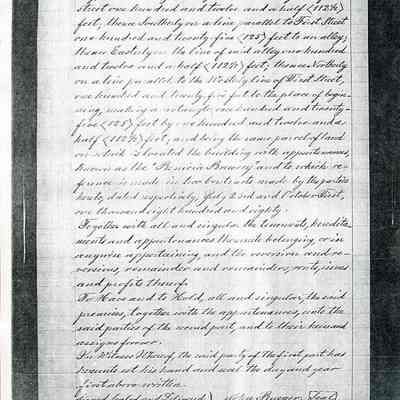 Street one hundred and twelve and a half (112½)
feet, thence Southerly on a line parallel to First Street
one hundred and twenty five (125) feet to an alley;
thence Easterly on the line of said alley one hundred
and twelve and a half (112½) feet, thence Northerly
on a line parallel to the Westerly line of First Street,
one hundred and twenty five feet to the place of begin-
ning, making a rectangle one hundred and twenty-
five (125) feet by one hundred and twelve and a
half (112½) feet, and being the same parcel of land
on which is located the building with appurtenances,
known as the "Benicia Brewery" and to which re-
ference is made in two contracts made by the parties
hereto, dated respectively, July 2nd and October First,
one thousand eight hundred and eighty.
Together with all and singular the tenements, heredita-
ments and appurtenances thereunto belonging, or in
anywise appertaining, and the reversion and re-
versions, remainder and remainders, rents, issues
and profits thereof.
To Have and to Hold, all and singular, the said
premises, together with the appurtenances, unto the
said parties of the second part, and to their heirs and
assigns forever.
In Witness Whereof, the said party of the first part has
hereunto set his hand and seal the day and year
first above written.
Signed Sealed and Delivered ) Seal